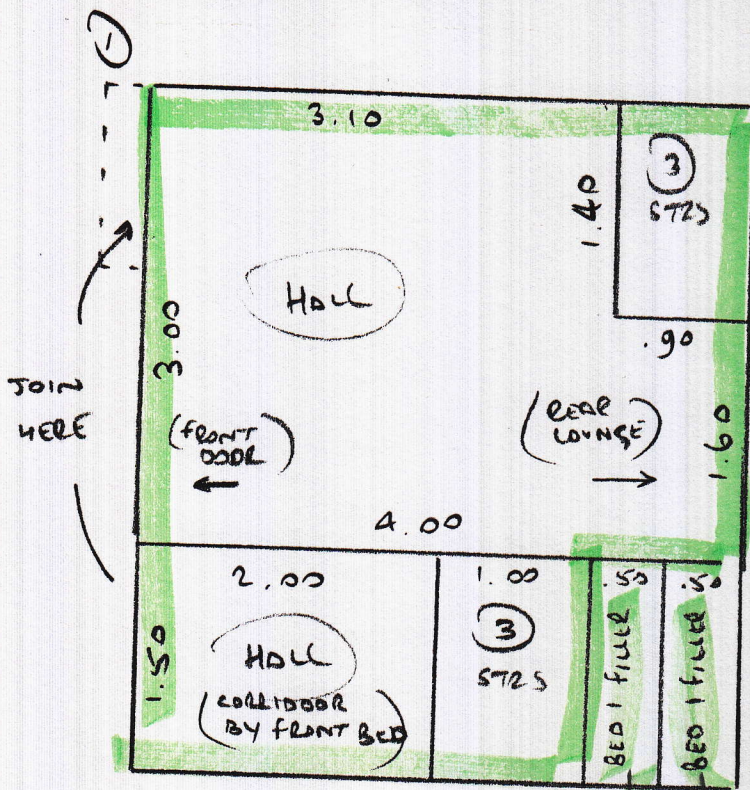 1
3.10
1.40
3
STRS
HALL
.90
3.00
JOIN
HERE
(FRONT
DOOR)
(REAR
LOUNGE)
1.60
4.00
2.00
1.00
.50
.50
1.50
HALL
(CORRIDOOR
BY FRONT BED)
3
STRS
BED 1 FILLER
BED 1 FILLER